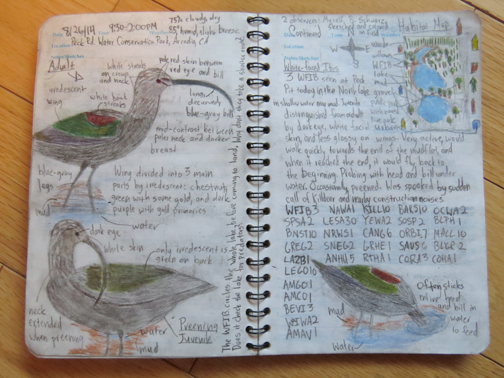 8/26/14 9:30-2:00PM
75% cloudy, dry
Peck Rd. Water Conservation Park, Arcadia, CA
Adult
white streaks
on crown
and neck
red skin between
red eye and bill
iridescent
wing
white back
streaks
long
decurved
blue-gray bill
mid-contrast between
paler neck and darker
breast
blue-gray
legs
mud
Wing divided into 3 main
parts by iridescent: chestnut,
green with some gold, and dark
purple with gold primaries
water
dark eye
white skin
only iridescent is
green on back
neck
extended
when preening
water
mud
Preening
Juvenile
The WFIB circles the whole lake before coming to land.
Habitat Map
White-faced Ibis
3 WFIB seen at Peck
Pit today in the North lake grazing
in shallow water and mud. Juvenile
distinguished from adult
by dark eye, white facial
skin, and less glossy on wings. Very active, would
walk quickly towards the end of the mudflat, and
when it reached the end, it would fly back to
the beginning. Probing with head and bill under
water. Occasionally preened. Was spooked by sudden
call of Killdeer and nearby construction noises.
WFIB 3 NAWA1 KILL10 BARS10 OCWA2
SPSA2 LESA30 YEWA2 SOSP2 BLPH1
BNST10 NRWS1 CANG6 ORBI7 MALL10
GREG2 SNEG2 GRHE1 SAVS2 BLGR2
LAZB1 ANHU5 RTHA1 CORA3 COHA1
LEGO10
AMGO11
AMCO1
BEVI3
WIWA2
AMAV1
Often sticks
entire head
and bill in
water
to feed
mud
water